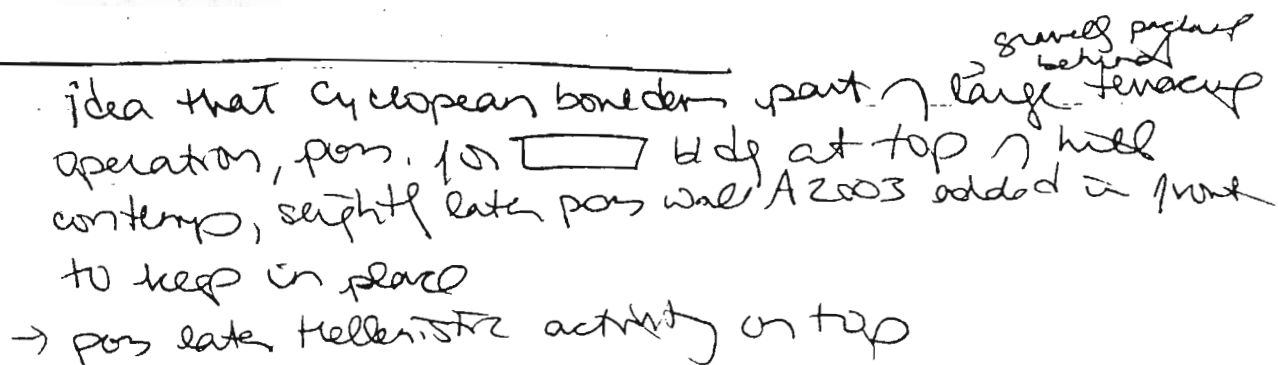 gravelly packing
behind
idea that Cyclopean boulders part of large terracing
operation, poss. for bldg at top of hill
contemp, slightly later poss wall A2003 added in front
to keep in place
→ poss later Hellenistic activity on top